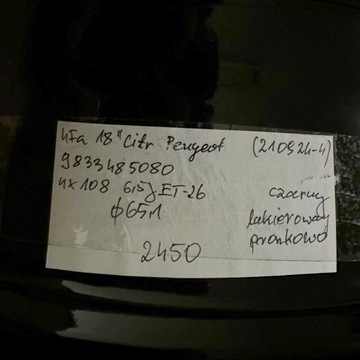 4Fa 18" Citr Peugeot (210924-4)
9833485080
4x108 6,5J ET-26
ϕ65,1
czarny
lakierowany
proszkowo
2450